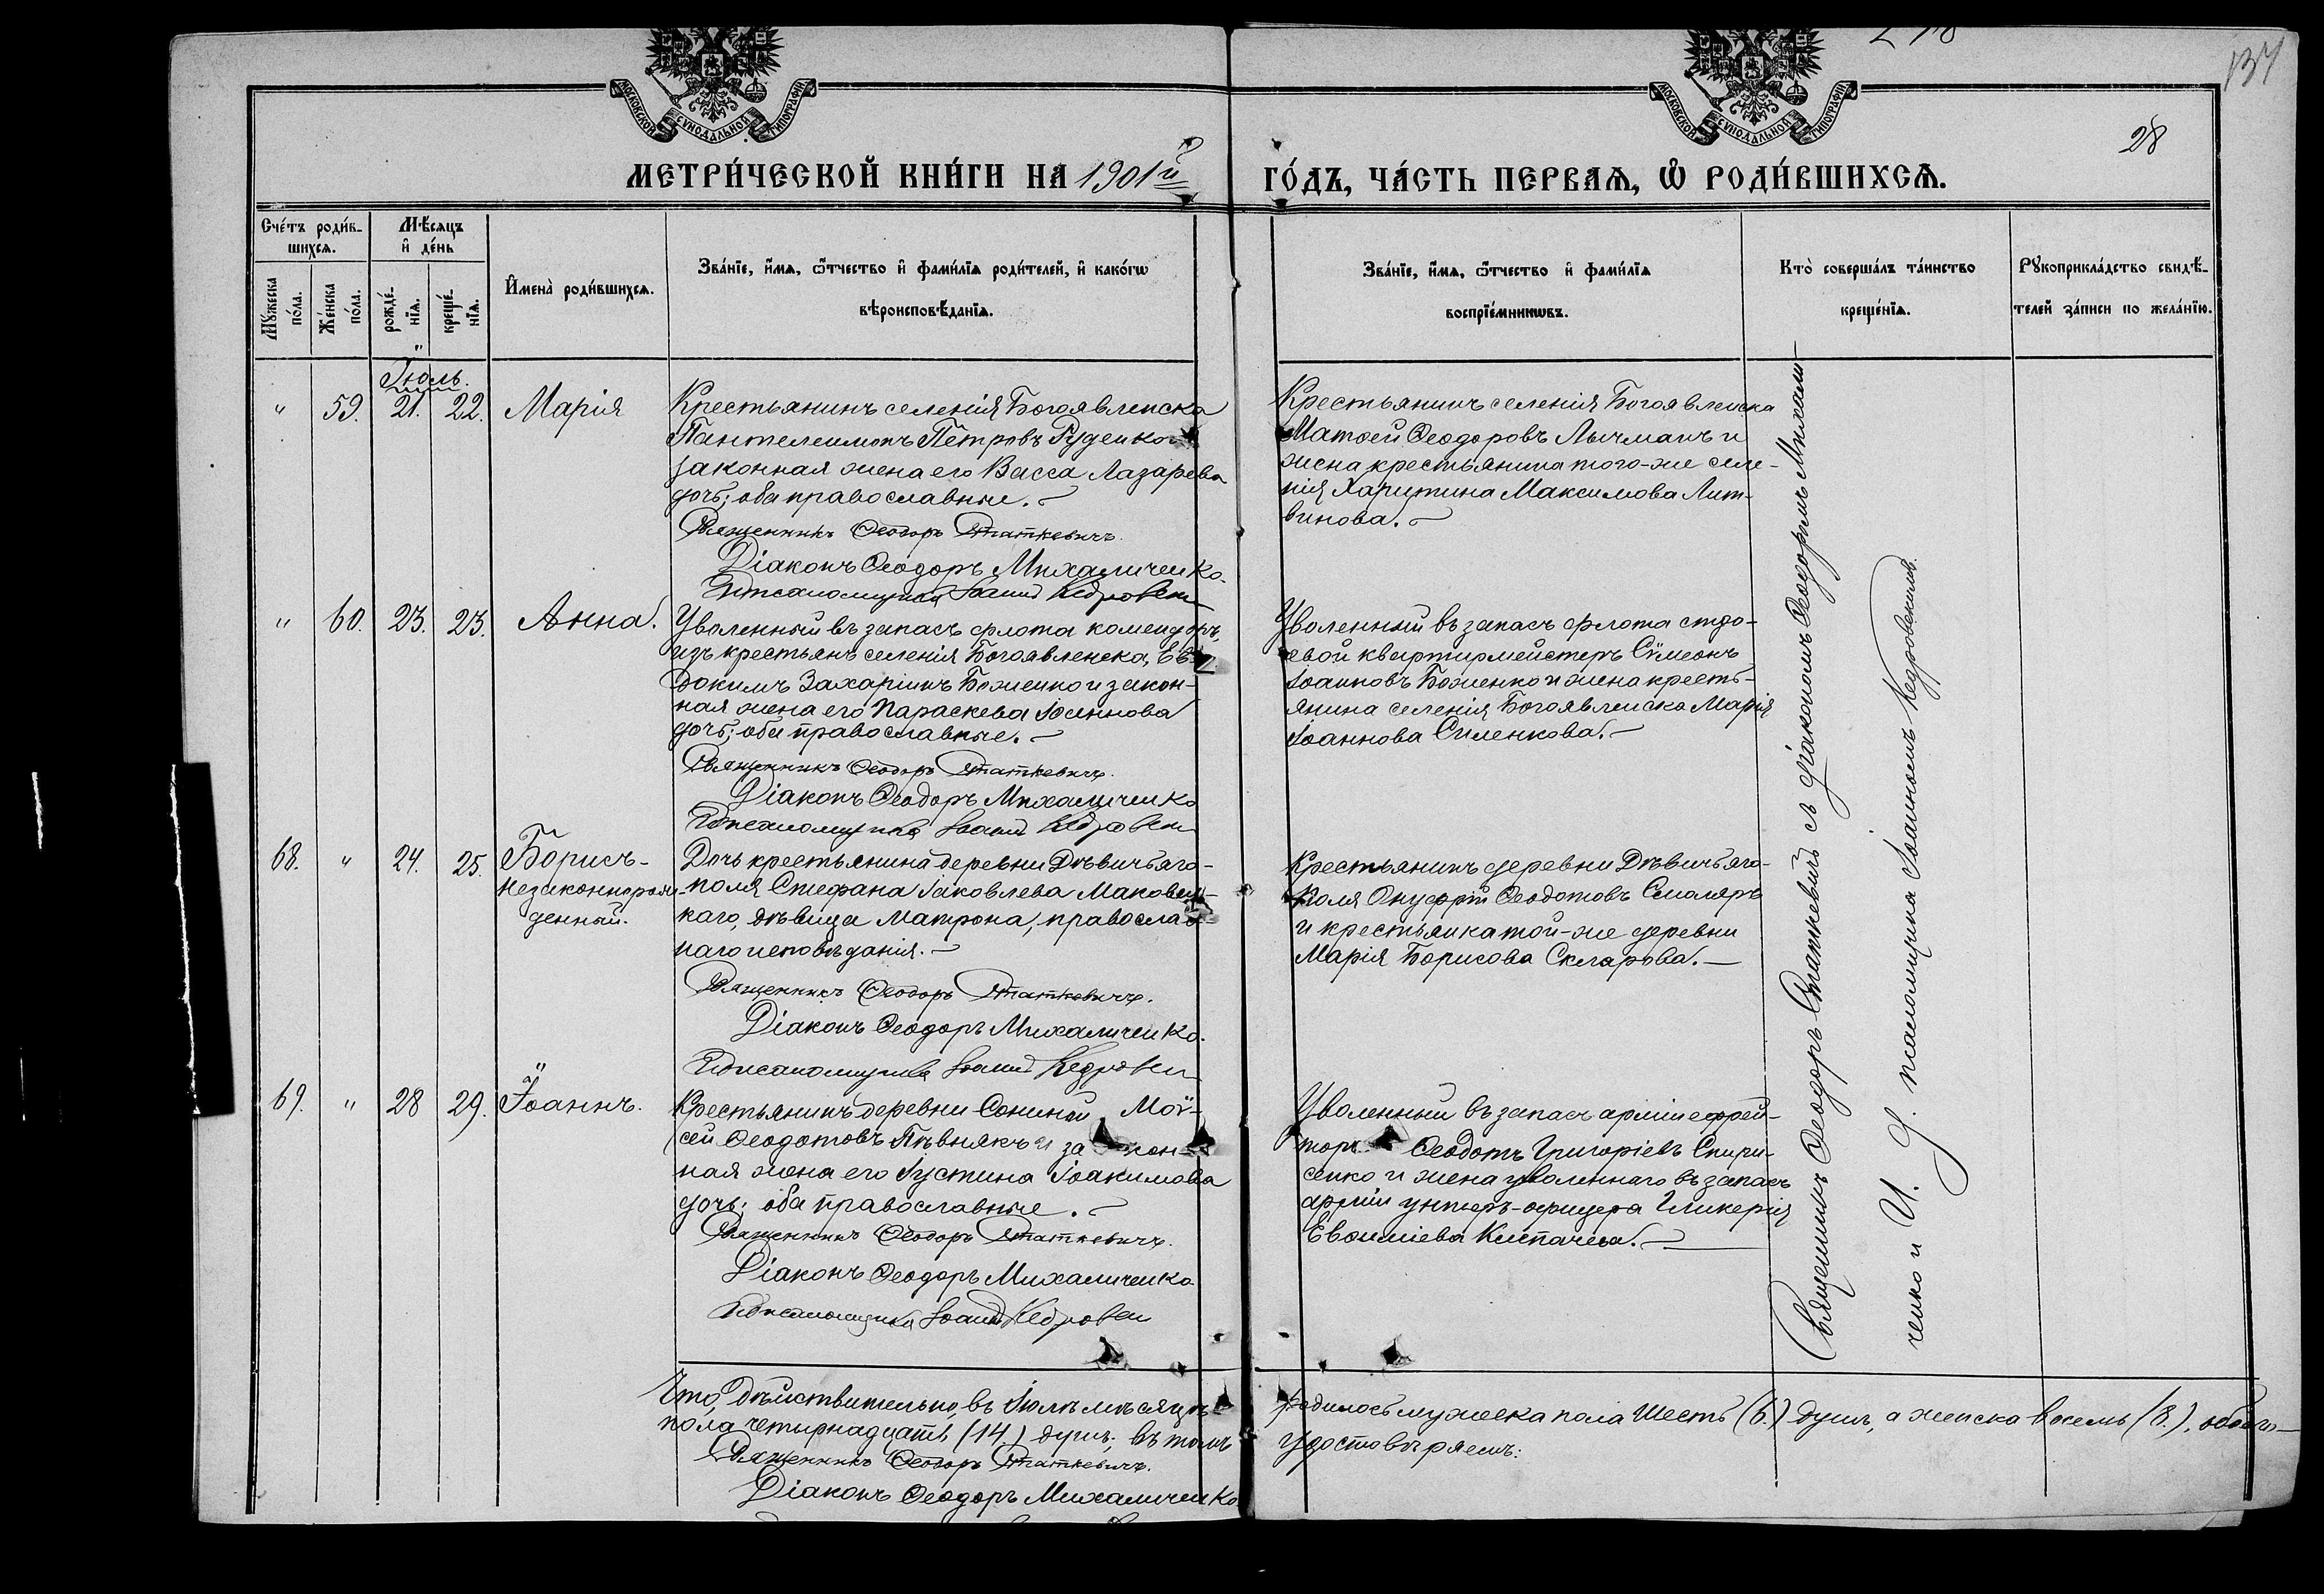 МОСКОВСКОЙ СѴНОДАЛЬНОЙ ТИПОГРАФІИ
МОСКОВСКОЙ СѴНОДАЛЬНОЙ ТИПОГРАФІИ
137
28
МЕТРИ́ЧЕСКОЙ КНИ́ГИ НА 1901й
ГО́ДЪ, ЧА́СТЬ ПЕРВАѦ, Ѡ РОДИ́ВШИХСѦ.
Сче́тъ роди́в-
шихсѧ.
Мꙋжеска по́ла.
Же́нска по́ла.
Мѣ́сяцъ
и҆ де́нь
рожде́-
нїѧ.
креще́-
нїѧ.
И҆мена̀ роди́вшихсѧ.
Зва́нїе, и҆́мѧ, ѻ҆́тчество и҆ фами́лїѧ роди́телей, и҆ како́гѡ
вѣроисповѣ́данїѧ.
Зва́нїе, и҆́мѧ, ѻ҆́тчество и҆ фами́лїѧ
воспрїе́мникѡвъ.
Кто̀ соверша́лъ та́инство
креще́нїѧ.
Рꙋкоприкла́дство свидѣ́-
телей за́писи по жела́нїю.
Іюль.
" 59. 21. 22. Марія
Крестьянинъ селенія Богоявленска
Пантелеимонъ Петровъ Руденко и
законная жена его Васса Лазарева
дочь; оба православные.
Священникъ Ѳеодоръ Статкевичъ.
Діаконъ Ѳеодоръ Михаличенко.
Крестьянинъ селенія Богоявленска
Матѳей Ѳеодоровъ Лычманъ и
жена крестьянина того-же селе-
нія Харитина Максимова Лит-
винова.
" 60. 23. 23. Анна.
Уволенный въ запасъ флота комендоръ,
изъ крестьянъ селенія Богоявленска, Ев-
докимъ Захаріинъ Боженко и закон-
ная жена его Параскева Іоаннова
дочь; оба православные.
Священникъ Ѳеодоръ Статкевичъ.
Діаконъ Ѳеодоръ Михаличенко
Уволенный въ запасъ флота стро-
евой квартирмейстеръ Сѵмеонъ
Іоанновъ Боженко и жена кресть-
янина селенія Богоявленска Марія
Іоаннова Силенкова.
68. " 24. 25. Борисъ-
незаконнорож-
денный.
Дочь крестьянина деревни Дѣвичьяго-
поля Стефана Іаковлева Маковец-
каго, дѣвица Матрона, православ-
наго исповѣданія.
Священникъ Ѳеодоръ Статкевичъ.
Діаконъ Ѳеодоръ Михаличенко.
Крестьянинъ деревни Дѣвичьяго-
поля Онуфрій Ѳеодотовъ Смоляръ
и крестьянка той-же деревни
Марія Борисова Склярова.
69. " 28 29. Іоаннъ.
Крестьянинъ деревни Сониной Мои-
сей Ѳеодотовъ Пѣвнякъ и закон-
ная жена его Іустина Іоакимова
дочь; оба православные.
Священникъ Ѳеодоръ Статкевичъ.
Діаконъ Ѳеодоръ Михаличенко
Уволенный въ запасъ арміи ефрей-
торъ Ѳеодотъ Григоріевъ Спири-
сенко и жена уволеннаго въ запасъ
арміи унтеръ-офицера Гликерія
Священникъ Ѳеодоръ Статкевичъ съ діакономъ Ѳеодоромъ Михали-
ченко и И. д. псаломщика Іоанномъ Кедровскимъ.
Что, дѣйствительно, въ Іюлѣ мѣсяцѣ родилось мужеска пола шесть (6.) душъ, а женска восемь (8.), обоего
пола четырнадцать (14.) душъ; въ томъ удостовѣряемъ:
Священникъ Ѳеодоръ Статкевичъ.
Діаконъ Ѳеодоръ Михаличенко